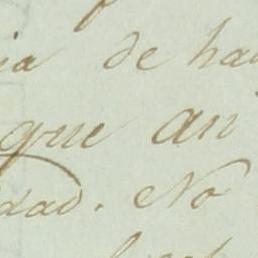 ia de ha
que an
dad. No